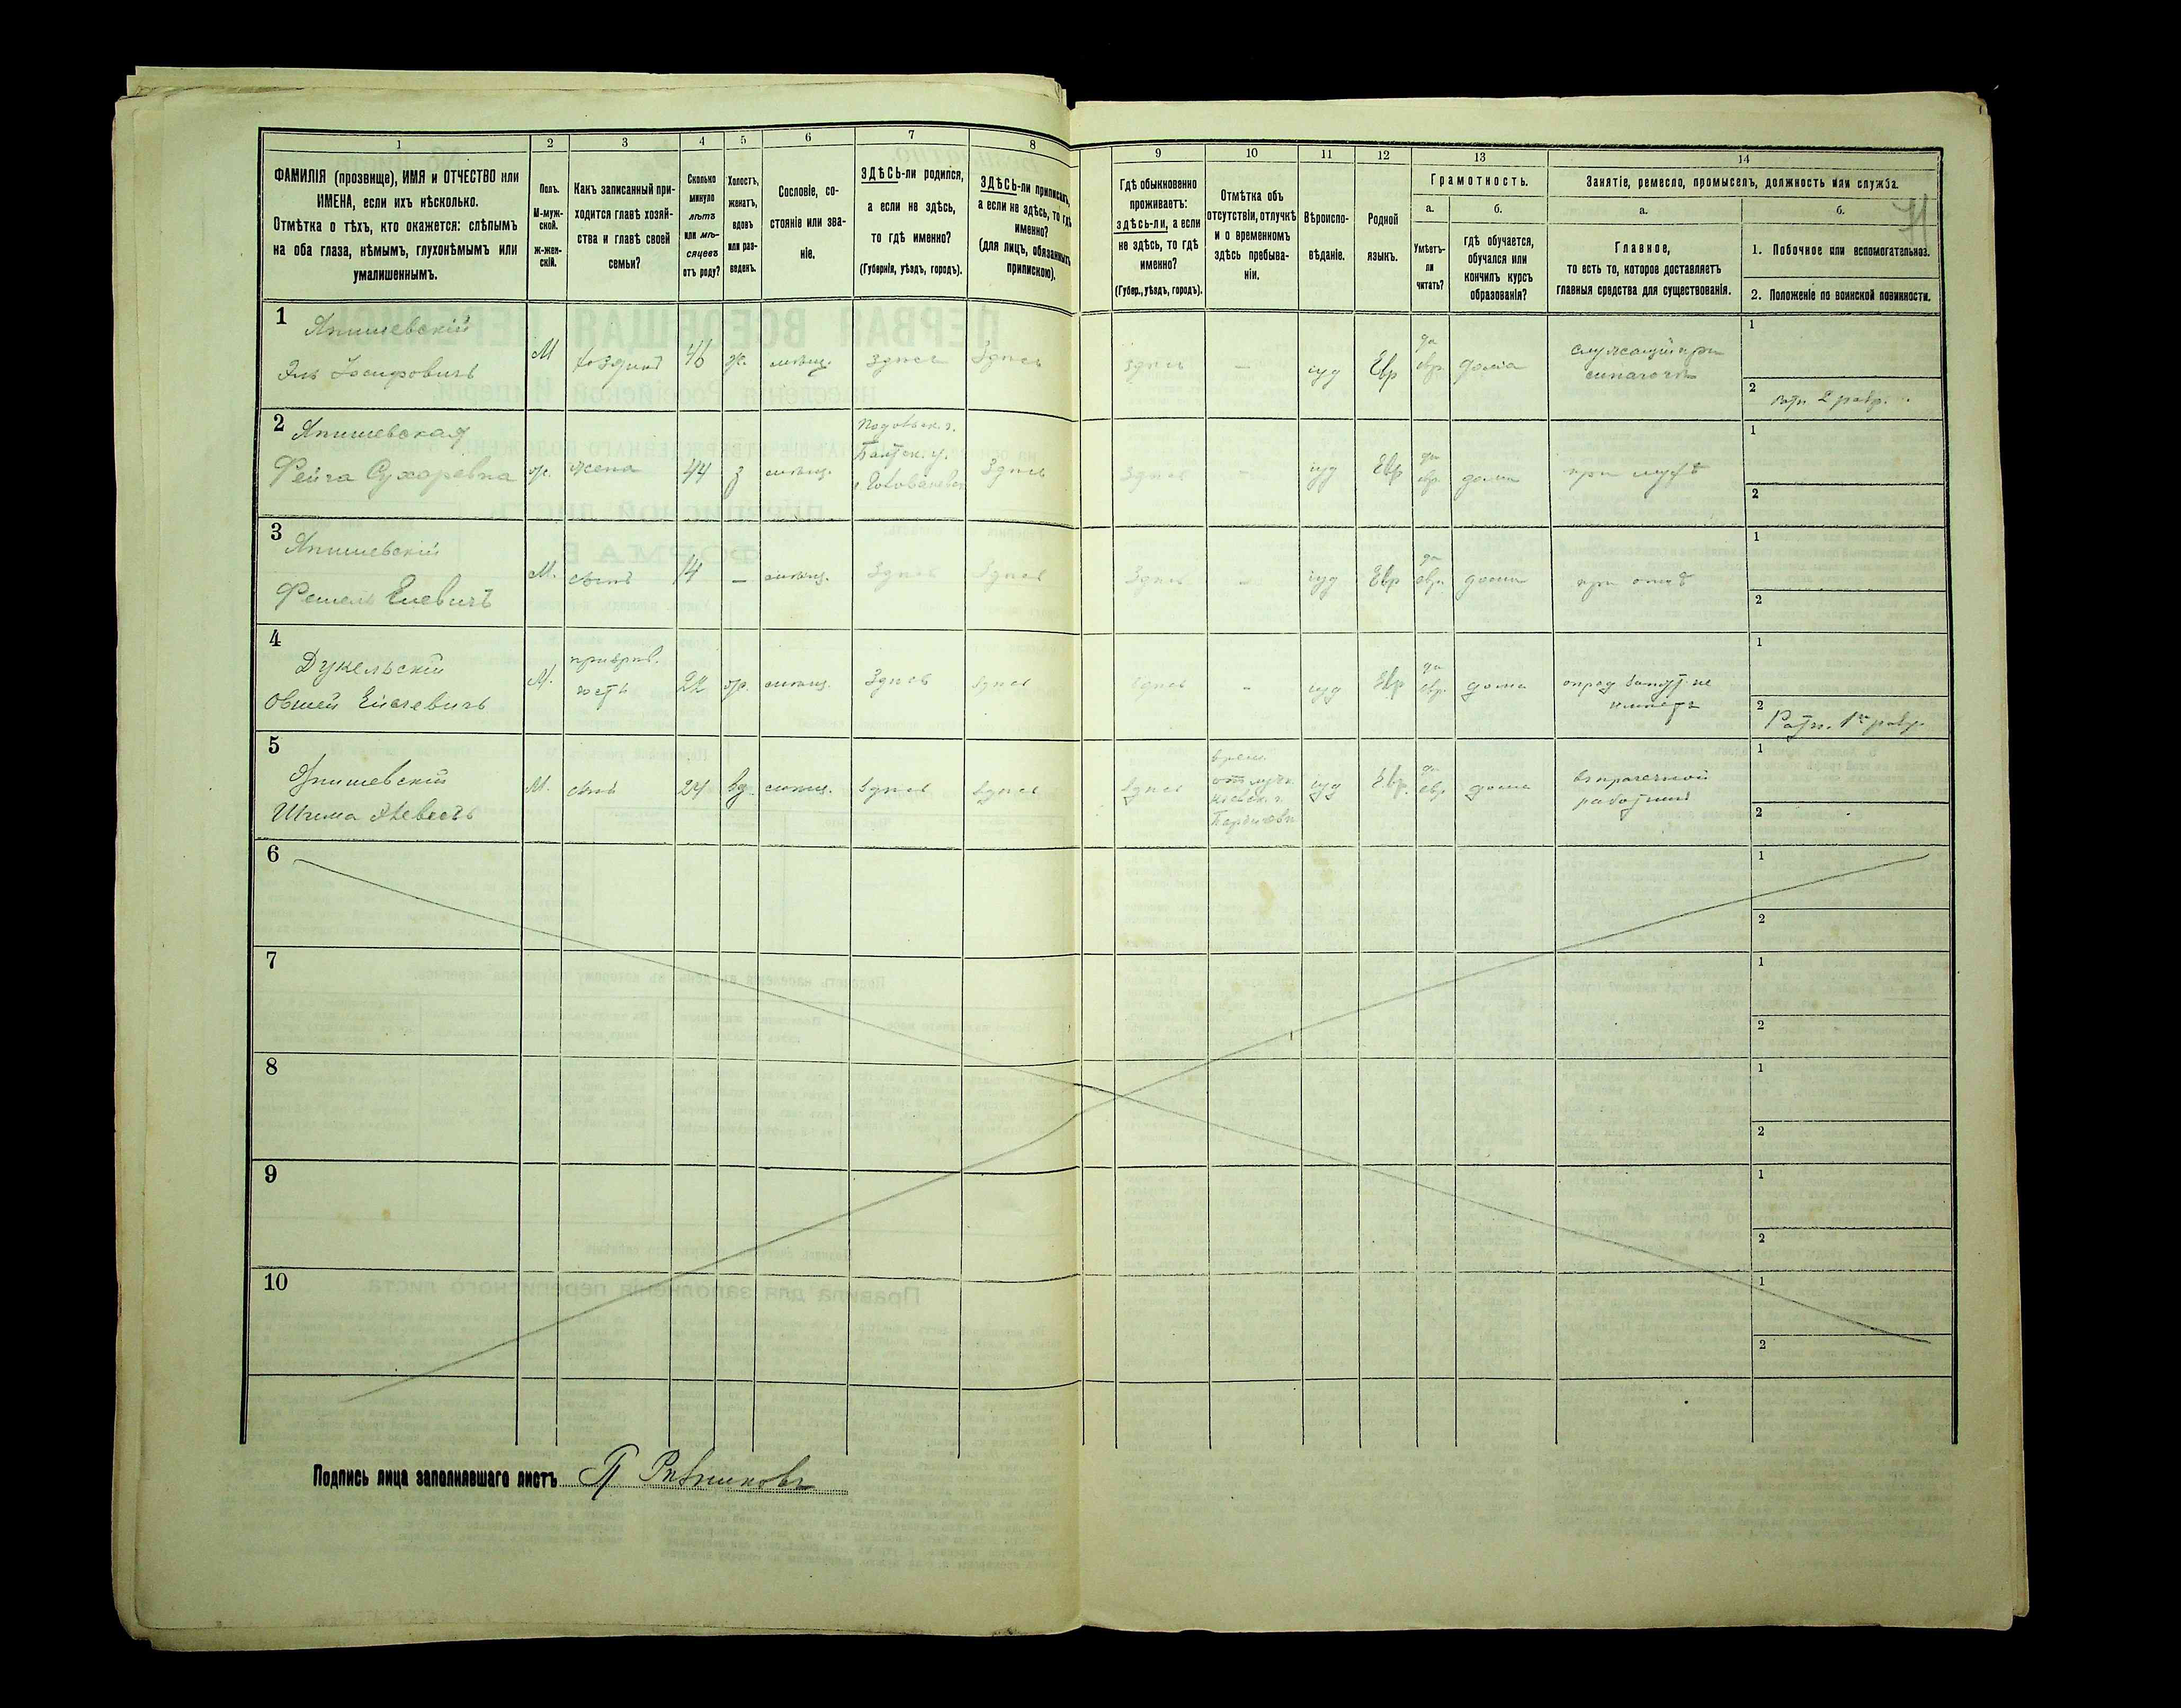 1
2
3
4
5
6
7
8
9
10
11
12
13
14
ФАМИЛІЯ (прозвище), ИМЯ и ОТЧЕСТВО или
ИМЕНА, если ихъ нѣсколько.
Отмѣтка о тѣхъ, кто окажется: слѣпымъ
на оба глаза, нѣмымъ, глухонѣмымъ или
умалишеннымъ.
Полъ.
М-муж-
ской.
Ж-жен-
скій.
Какъ записанный при-
ходится главѣ хозяй-
ства и главѣ своей
семьи?
Сколько
минуло
лѣтъ
или мѣ-
сяцевъ
отъ роду?
Холостъ,
женатъ,
вдовъ
или раз-
веденъ.
Сословіе, со-
стояніе или зва-
ніе.
ЗДѢСЬ-ли родился,
а если не здѣсь,
то гдѣ именно?
(Губернія, уѣздъ, городъ).
ЗДѢСЬ-ли приписанъ,
а если не здѣсь, то гдѣ
именно?
(для лицъ, обязанныхъ
припискою).
Гдѣ обыкновенно
проживаетъ:
здѣсь-ли, а если
не здѣсь, то гдѣ
именно?
(Губер., уѣздъ, городъ).
Отмѣтка объ
отсутствіи, отлучкѣ
и о временномъ
здѣсь пребыва-
ніи.
Вѣроиспо-
вѣданіе.
Родной
языкъ.
Грамотность.
а.
Умѣетъ-
ли
читать?
б.
гдѣ обучается,
обучался или
кончилъ курсъ
образованія?
Занятіе, ремесло, промыселъ, должность или служба.
а.
Главное,
то есть то, которое доставляетъ
главныя средства для существованія.
б.
1. Побочное или вспомогательное.
2. Положеніе по воинской повинности.
1
Япишевскій
Эль Іосифовичъ
М
хозяинъ
46
ж.
мѣщ.
здѣсь
Здѣсь
здѣсь
—
іуд
Евр
да
евр.
дома
служащій при
синагогѣ
1
2 ратн. 2 разр.
2 Япишевская
Фейга Сухаревна
ж.
жена
44
з
мѣщ.
Подольск. г.
Балтск. у.
Здѣсь
Здѣсь
—
іуд
Евр
да
евр.
дома
при мужѣ
1
2
3 Япишевскій
Фешель Елевичъ
М.
сынъ
14
—
мѣщ.
Здѣсь
Здѣсь
Здѣсь
-
іуд
Евр
да
евр.
дома
при отцѣ
1
2
4
Дукельскій
Овшей
М.
гость
22
ж.
мѣщ.
Здѣсь
Здѣсь
Здѣсь
-
іуд
Евр
да
евр.
дома
опред. занят. не
имѣетъ
1
2 Ратн. 1го разр.
5
Япишевскій
М.
сынъ
24
вд.
мѣщ.
Здѣсь
Здѣсь
Здѣсь
врем.
отлуч.
Кіевск. г.
Бердичевъ
іуд
Евр.
да
евр
дома
въ прачечной
работникъ
1
2
6
1
2
7
1
2
8
1
2
9
1
2
10
1
2
Подпись лица заполнявшаго листъ